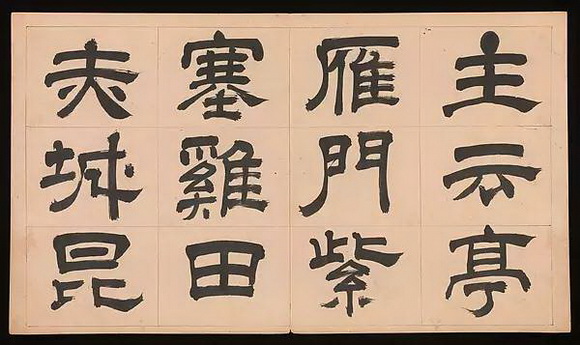 主云亭
雁門紫
塞雞田
赤城昆